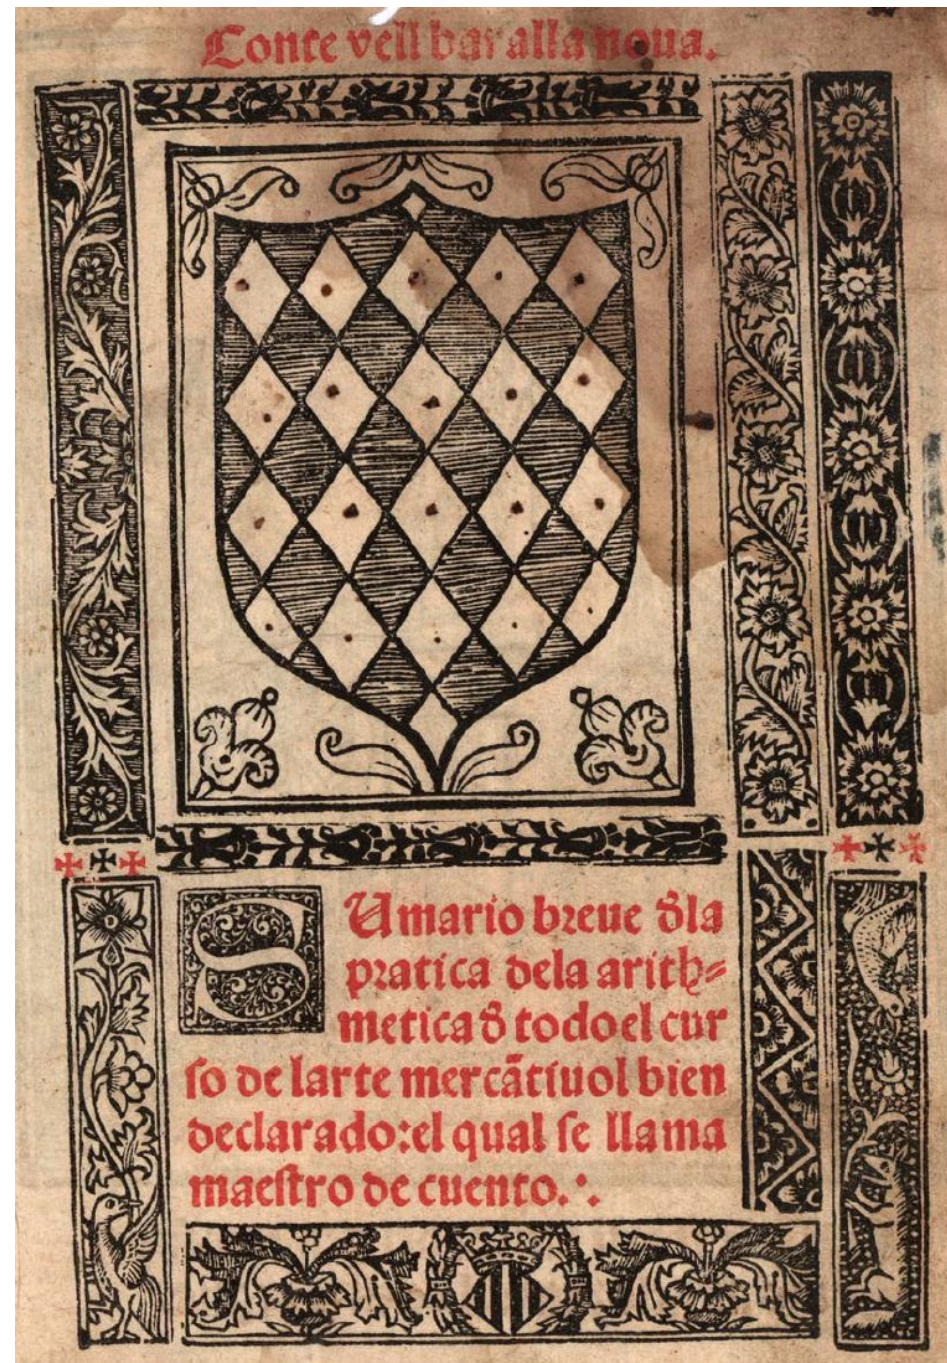 Conte vell baralla noua.
SUmario breue dela
pratica dela arith⸗
metica d̛ todo el cur
ſo de larte mercãtiuol bien
declarado:el qual ſe llama
maeſtro de cuento.∙.